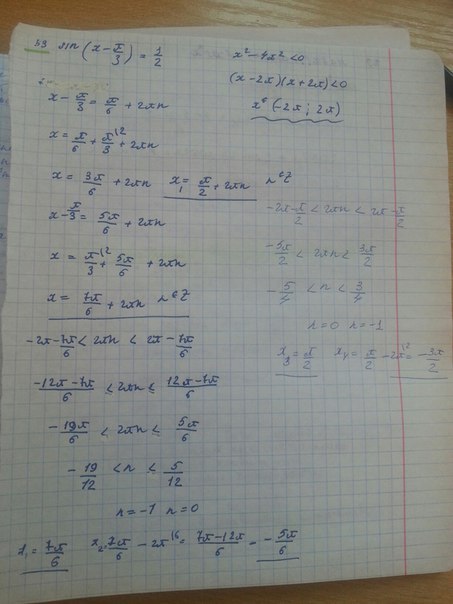 53 sin(x - π/3) = 1/2
x - π/3 = π/6 + 2πn
x = π/6 + π/3 \2 + 2πn
x = 3π/6 + 2πn x₁ = π/2 + 2πn n∈Z
x - π/3 = 5π/6 + 2πn
x = π/3 \2 + 5π/6 + 2πn
x = 7π/6 + 2πn n∈Z
-2π - 7π/6 < 2πn < 2π - 7π/6
(-12π - 7π)/6 ≤ 2πn ≤ (12π - 7π)/6
-19π/6 ≤ 2πn ≤ 5π/6
-19/12 < n ≤ 5/12
n = -1 n = 0
x₁ = 7π/6 x₂ = 7π/6 - 2π \6 = (7π - 12π)/6 = -5π/6
x² - 4π² < 0
(x - 2π)(x + 2π) < 0
x∈(-2π; 2π)
-2π - π/2 < 2πn < 2π - π/2
-5π/2 < 2πn < 3π/2
-5/4 < n < 3/4
n = 0 n = -1
x₃ = π/2 x₄ = π/2 - 2π \2 = -3π/2